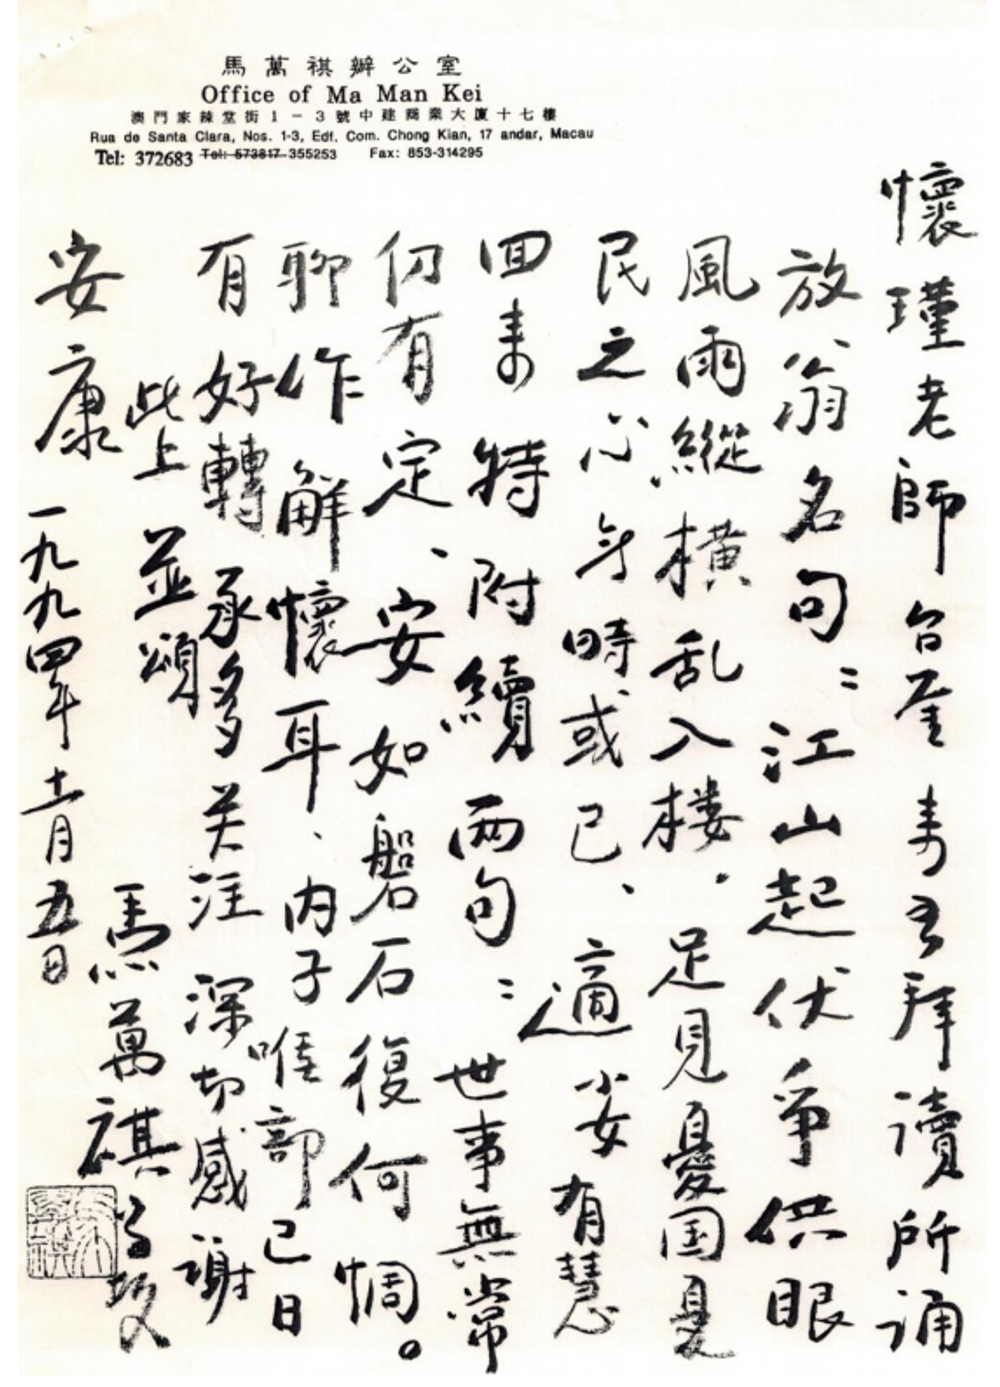 馬萬祺辦公室
Office of Ma Man Kei
澳門家辣堂街1-3號中建商業大廈十七樓
Rua de Santa Clara, Nos. 1-3, Edf. Com. Chong Kian, 17 andar, Macau
Tel: 372683 Tel: 573817 355253 Fax: 853-314295
懷瑾老師台鉴来书拜讀所诵
放翁名句：江山起伏争供眼
風雨縱横乱入楼．足見憂国憂
民之心身時或已、適少女有慧
回来特附續两句：世事無常
仍有定、安如磐石復何惆。
聊作解懷耳、内子喉部已日
有好轉承多关注深切感謝
此上並頌
安康
馬萬祺
一九九四年十一月五日